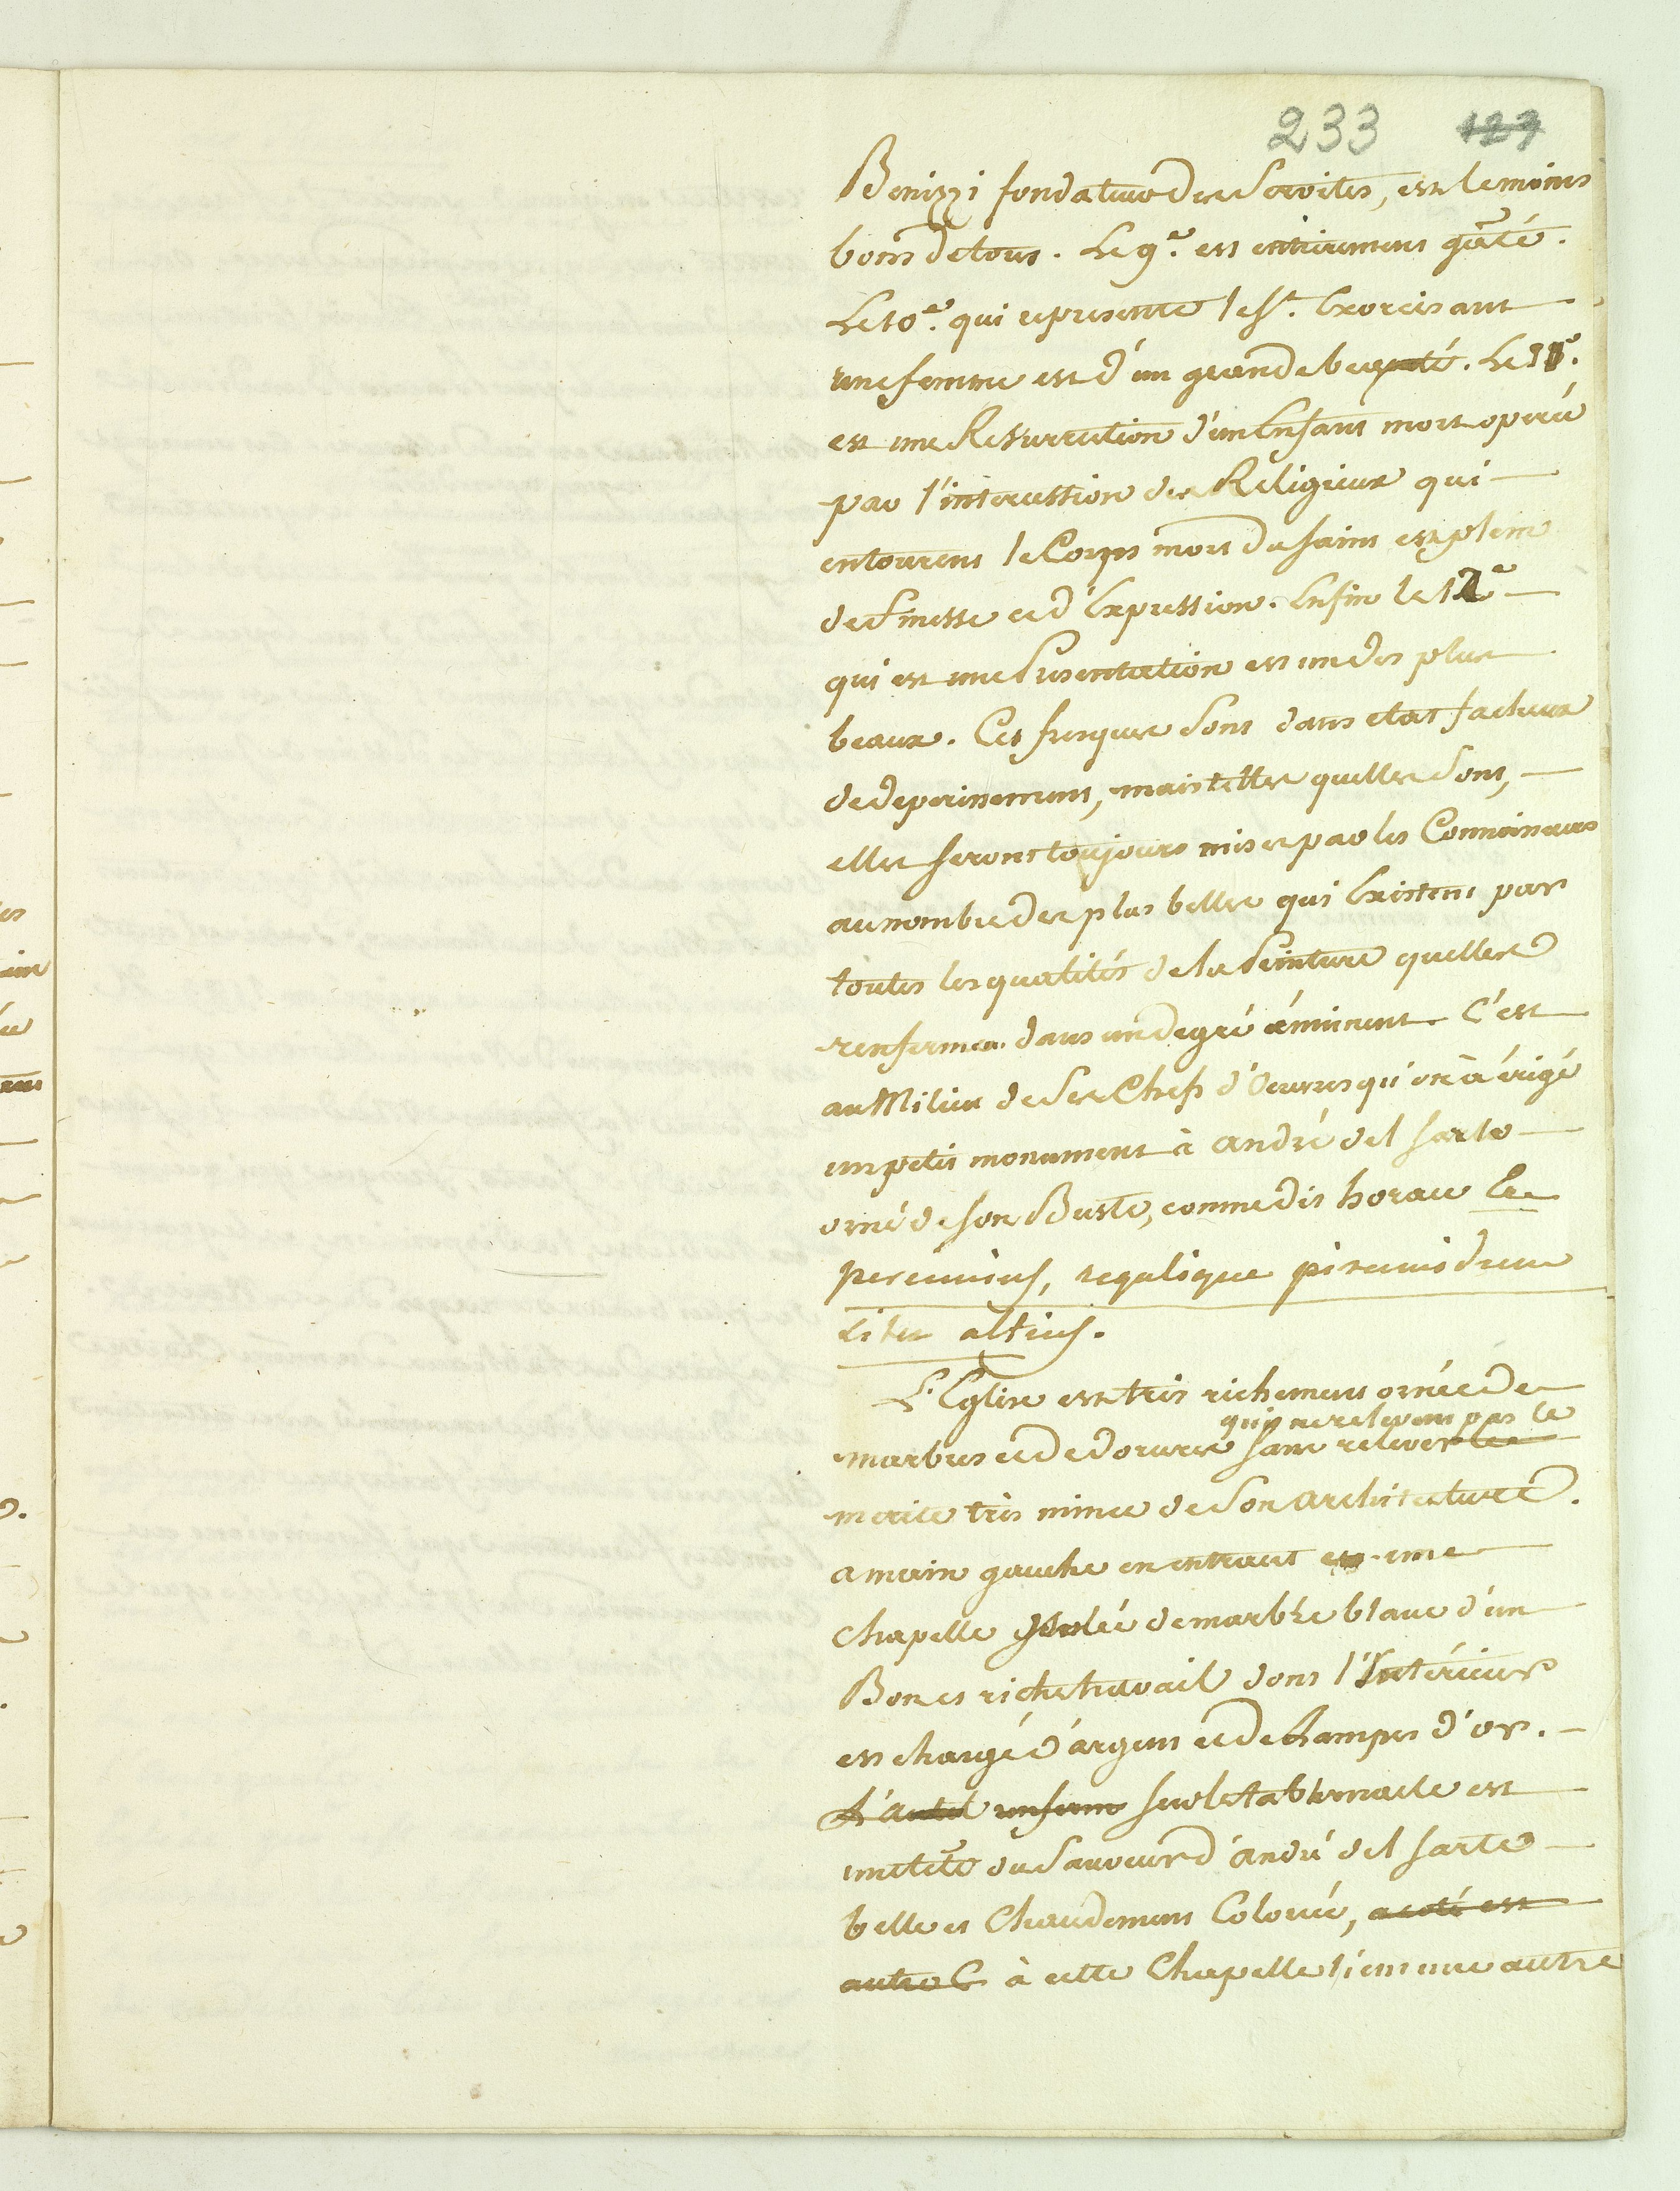 233 127
Benizzi fondateur des Servites, est le moins
bons de tous. Le 9.e est entierement gâté.
Le 10.e qui represente le St. Exorcisant
une femme est d'un grande beauté. Le 11e.
est une Resurrection d'un Enfant mort operée
par l'intercession des Religieux qui
entourent le Corps mort du saint est plein
de finesse et d'Expression. Enfin le 12e
qui est une Presentation est un des plus
beaux. Ces fresques sont dans etat facheux
de deperissement, mais telles quelles sont,
elles seront toujours mises par les Connoisseurs
au nombre des plus belles qui Existent par
toutes les qualités de la Peinture quelles
renferment dans un degré éminent. C'est
au Milieu de ses Chefs d'Oeuvres qu'on à érigé
un petit monument à André del Sarto
orné de son Buste, comme dit horace Ere
perennius, regalique piramidum
situ altius.
L'Eglise est très richement ornée de
qui ne relevent pas le
marbres et de dorures sans relever le
merite très mince de son architecture.
a main gauche en entrant est une
Chapelle isolée de marbre blanc d'un
Bon et riche travail dont l'Intérieur
est chargé d'argent et de Lampes d'or.
L'autel renferme sur le tabernacle est
une tête du Sauveur d'André del Sarte
belle et Chaudement Colorée, a coté est
autre C à cette Chapelle tient une autre